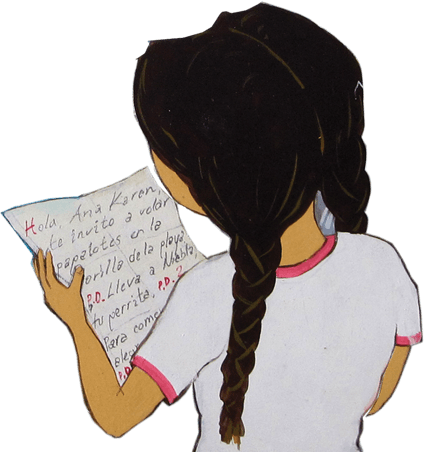 Hola, Ana Karen,
te invito a volar
papalotes en la
orilla de la playa
P.D. Lleva a Niebla,
tu perrita, P.D. 2
Para comer
P.D.